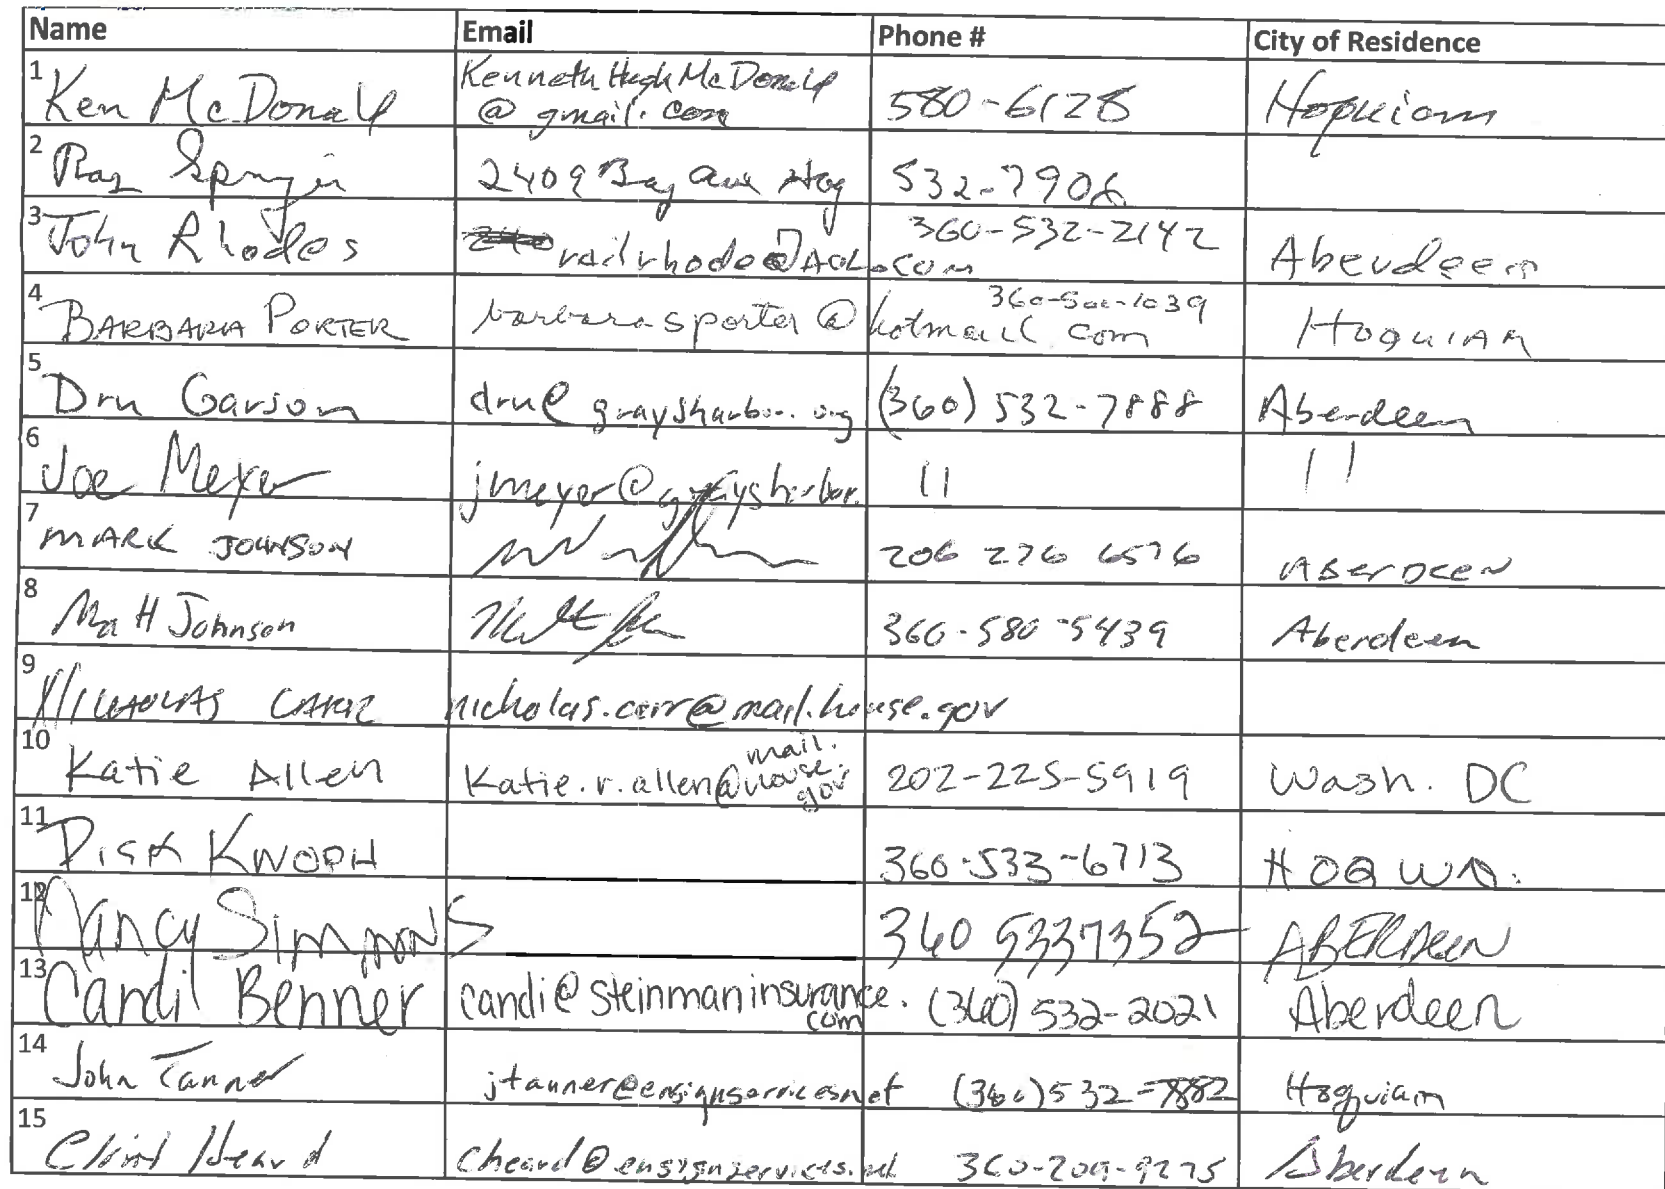 Name Email Phone # City of Residence
1 Ken McDonald KennethHughMcDonald
@ gmail.com 580-6128 Hoquiam
2 Ray 2409 Bay Ave Hoq 532-7906
3 John Rhodes railrhode@AOL.com 360-532-2142 Aberdeen
4 BARBARA PORTER barbarasporter@hotmail com 360-500-1039 HOQUIAM
5 Dru Garson dru@graysharbor.org (360) 532-7888 Aberdeen
6 Joe Meyer jmeyer@graysharbor. 11 11
7 MARK JOHNSON 206 276 6576 ABERDEEN
8 Matt Johnson 360-580-5439 Aberdeen
9 NICHOLAS CARR nicholas.carr@mail.house.gov
10 Katie Allen Katie.r.allen@mail.
house.
gov 202-225-5919 Wash. DC
11 DICK KNOPH 360-533-6713 HOQ WA.
12 Nancy Simmons 360 5337352 ABERDEEN
13 Candi Benner candi@steinmaninsurance.
com (360) 532-2021 Aberdeen
14 John Tanner jtanner@ensignservices.net (360)532-7882 Hoquiam
15 Clint Heard cheard@ensignservices.net 360-209-9275 Aberdeen